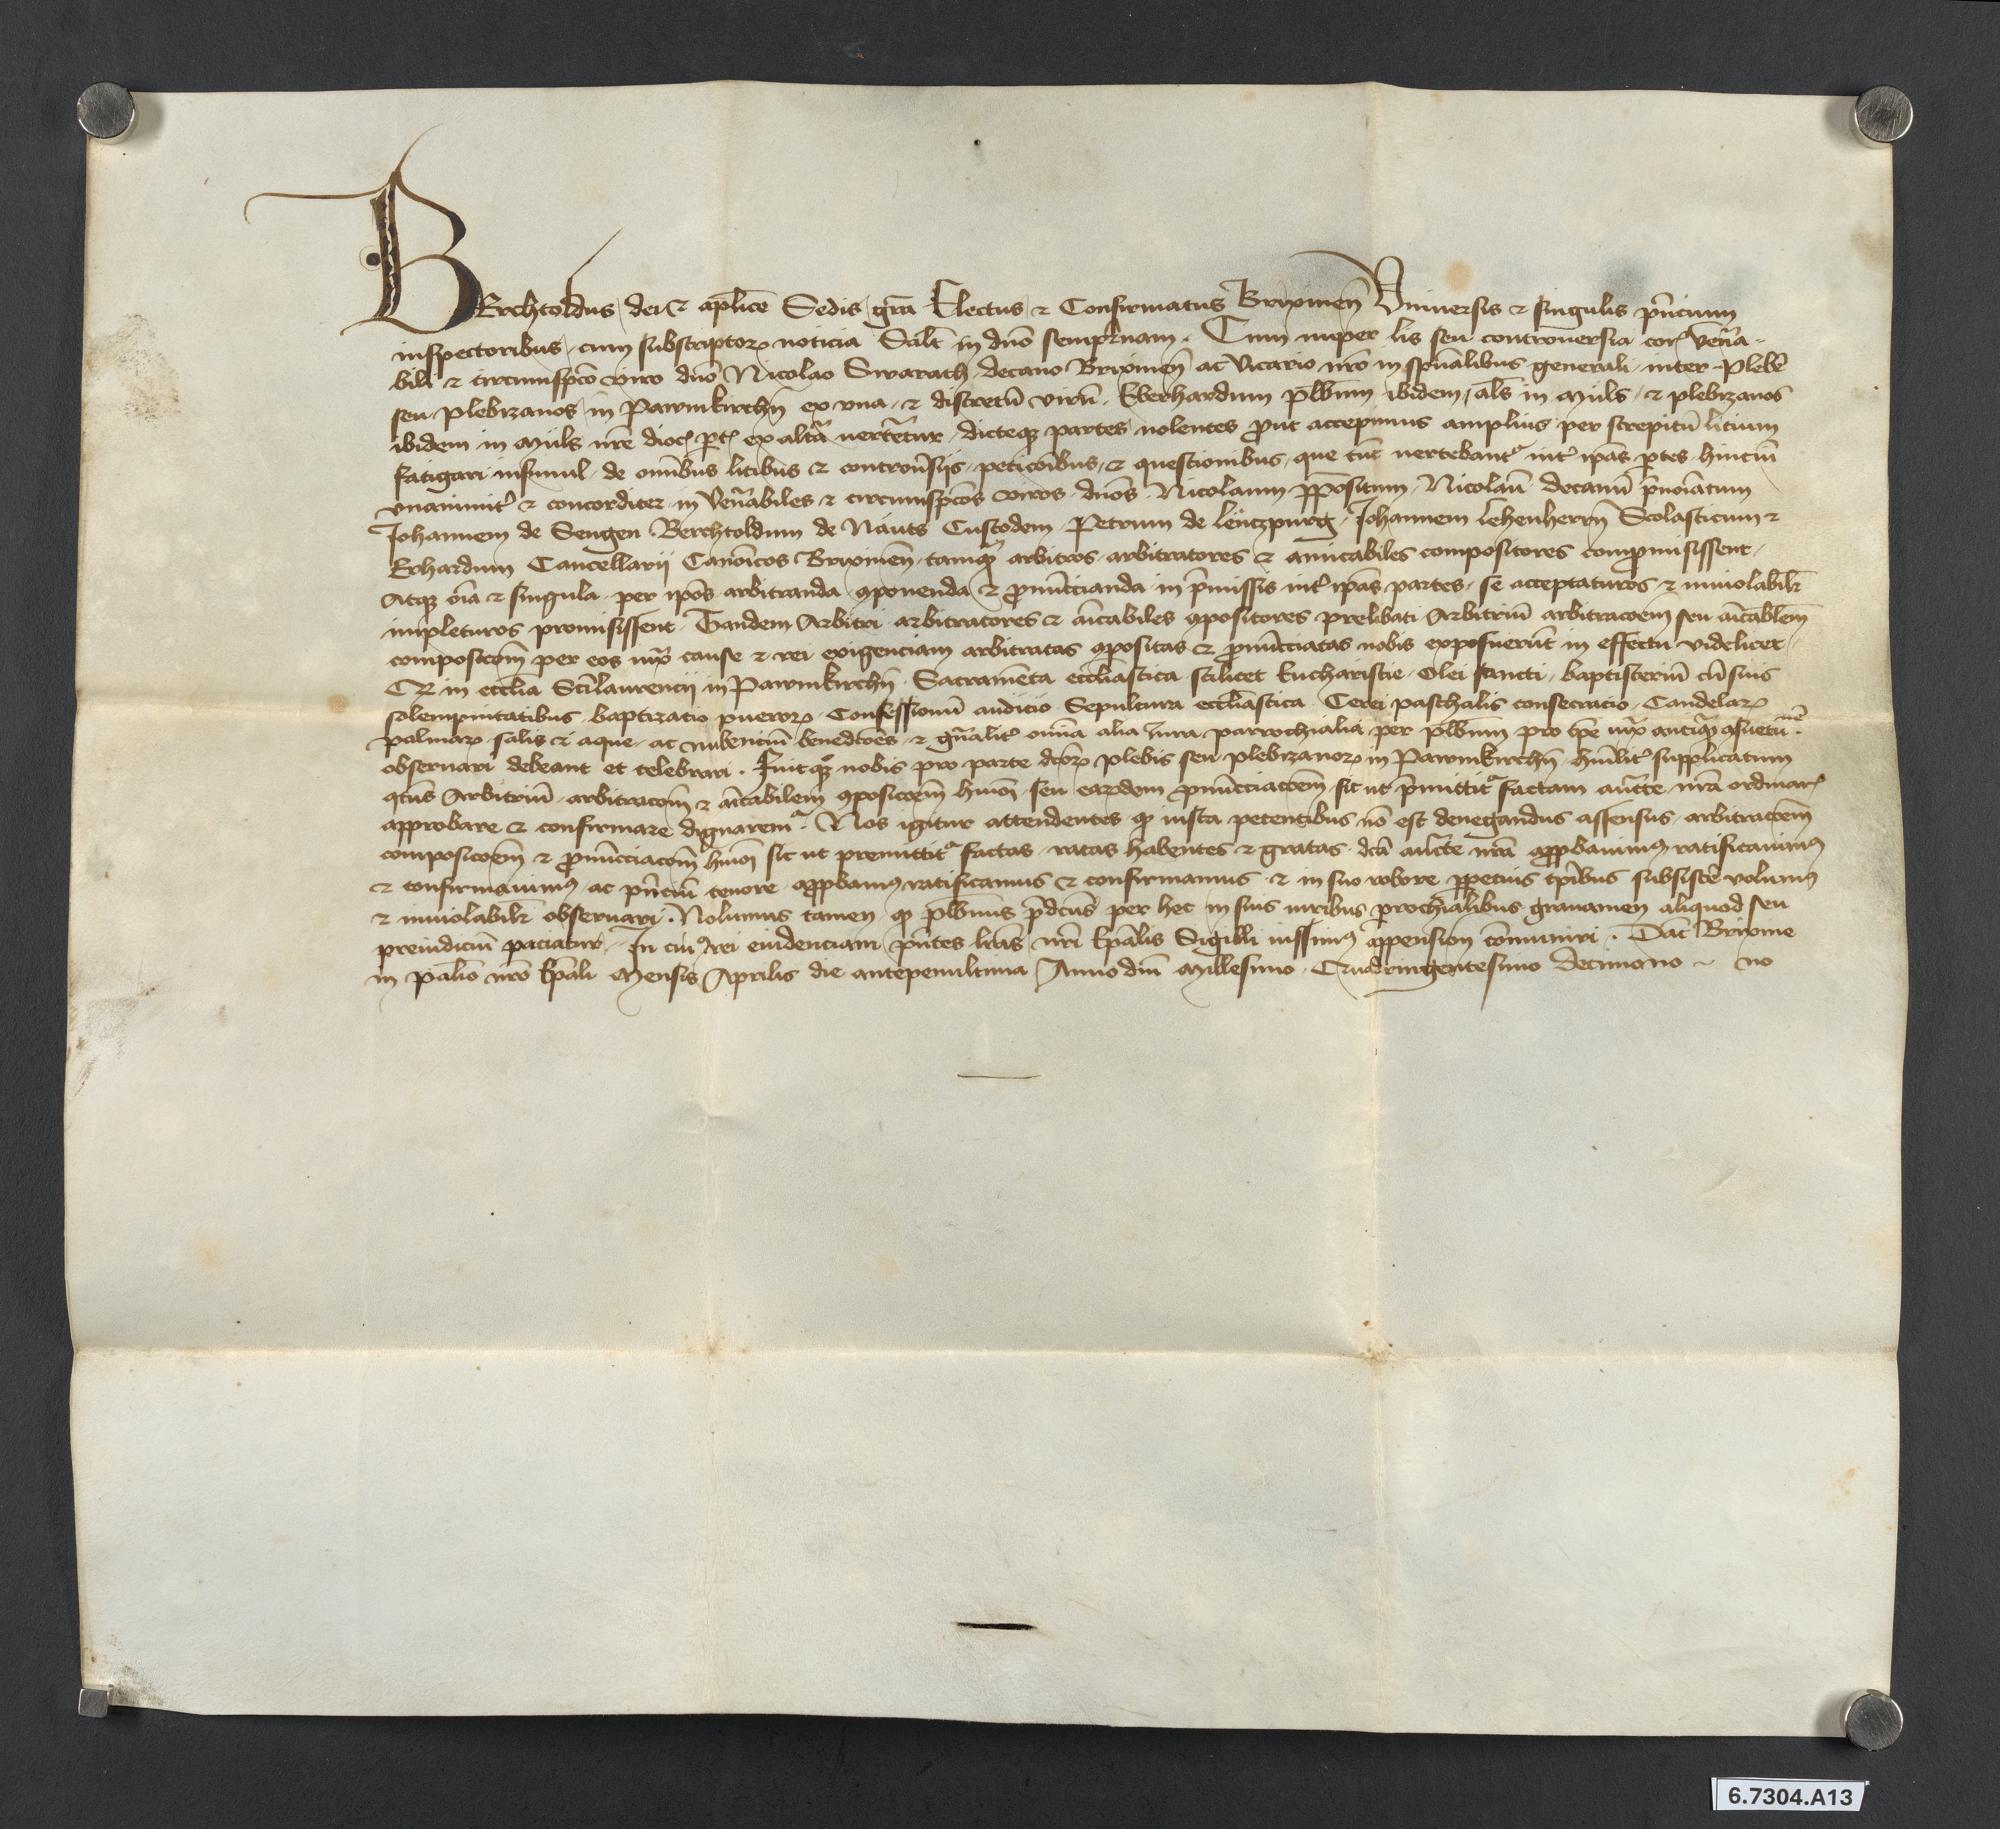 BErchtoldus dei et aplice Sedis gra Electus et Confirmatus Brixinen Vniuersis et singulis pncium
inspectoribus cum subscriptor noticia Salt in dno sempiternam. Cum nuper lis seu controuersia cor vena-
bili et circumspco viro dno Nicolao Swarath decano Brixinen ac Vicario nro in spualibus generali inter Plebe
seu plebizanos in Pawmkirchn ex vna et discretu viru Eberhardum plbnm ibidem als in Müls et plebizanos
ibidem in Müls nre dioc pt ex altera uertetur dicteque partes nolentes prout accepimus amplius per strepitu litium
fatigari insimul de omibus litibus et controusijs peticoibus et questionibus que tuc uertebant int ipas ptes hinciu
vnanimit et concorditer in Venabiles et circumspcos viros dnos Nicolaum Ppositum Nicolau decanu pnoiatum
Johannem de Sengen Berchtoldum de Nauts Custodem Petrum de Lentzpurg Johannem Lehenherrn Scolasticum et
Erhardum Cancellarij Canoicos Brixinen tamq arbitros arbitratores et amicabiles compositores compromisissent
Atque oia et singula per ipos arbitranda 9ponenda et pronucianda in pmissis int ipas partes se acceptaturos et inuiolabilr
impleturos promisissent Tandem Arbitri arbitratores et aicabiles 9positores prelibati Arbitriu arbitracoem seu aicablem
composicom per eos iux cause et rei exigenciam arbitratas 9positas et pronucciatas nobis exposuerut in effectu videlicet
Q in ecclia Sci Laurencij in Pawmkirchn Sacrameta eccliastica scilicet Eucharistie Olei sancti baptisteriu cu suis
solempnitatibus baptizatio pueror Confessionu audicio Sepultura eccliastica Cerei paschalis consecracio Candelar
palmar salis et aque ac nubenciu benedcoes et gnalit omia alia iura parrochialia per plbnm pro tpe iux antiqu 9suetu.ne
obseruari debeant et celebrari. Fuitque nobis pro parte dcor plebis seu plebizanor in Pawmkirchn humilit supplicatum
qtus Arbitriu arbitracom et aicabilem 9posicoem hmoi seu eardem pronucciacoem sic ut pmittit factam aucte nra ordinar
approbare et confirmare dignarem. Nos igitur attendentes q iusta petentibus no est denegandus assensus arbitracoem
composicoem et pronucciacom hmoi sic ut premittit factas ratas habentes et gratas dca aucte nra appbauimus ratificauimus
et confirmauimus ac pnciu tenore appbamus ratificamus et confirmamus et in suo robore ppetuis tpibus subsiste volumus
et inuiolabilr obseruari. Nolumus tamen q plbnus pdcus per hec in suis iuribus prochialibus grauamen aliquod seu
preiudiciu paciatur. In cui rei euidenciam pntes lras nri Epalis Sigilli iussimus appension comuniri. Dat Brixine
in palio nro Epali Mensis Aprilis die antepenultima Anno dni Millesimo Quadringentesimo decimono no